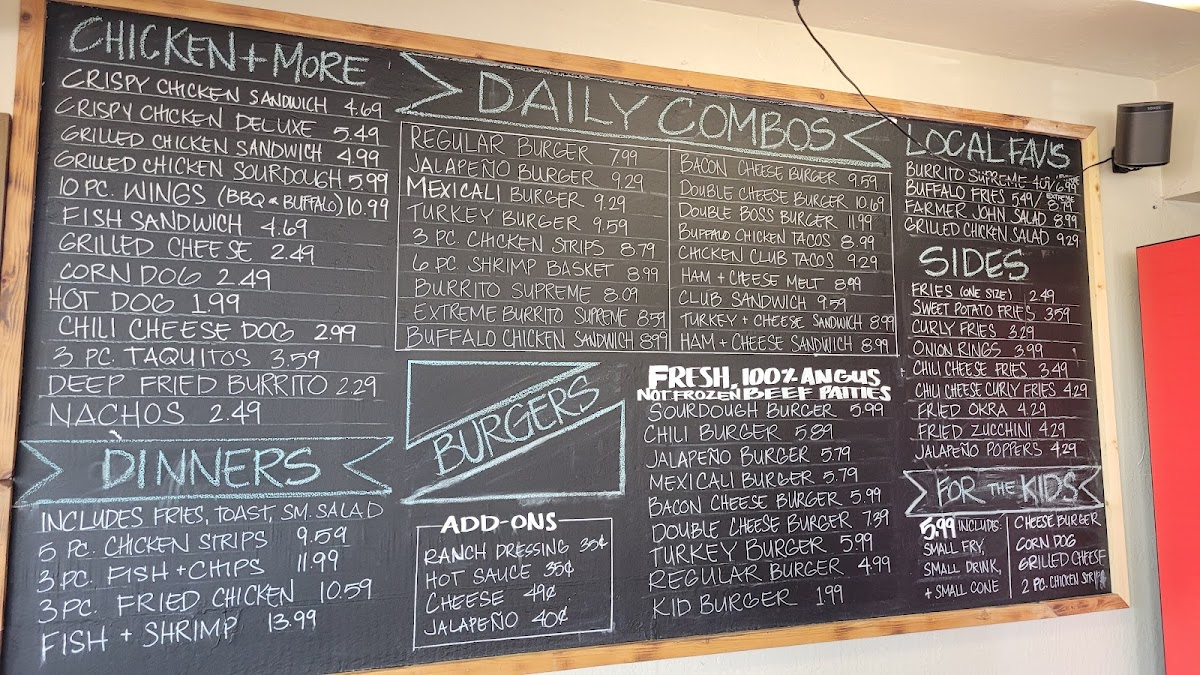 CHICKEN + MORE
CRISPY CHICKEN SANDWICH 4.69
CRISPY CHICKEN DELUXE 5.49
GRILLED CHICKEN SANDWICH 4.99
GRILLED CHICKEN SOURDOUGH 5.99
10 PC. WINGS (BBQ & BUFFALO) 10.99
FISH SANDWICH 4.69
GRILLED CHEESE 2.49
CORN DOG 2.49
HOT DOG 1.99
CHILI CHEESE DOG 2.99
3 PC. TAQUITOS 3.59
DEEP FRIED BURRITO 2.29
NACHOS 2.49
DINNERS
INCLUDES FRIES, TOAST, SM. SALAD
5 PC. CHICKEN STRIPS 9.59
3 PC. FISH + CHIPS 11.99
3 PC. FRIED CHICKEN 10.59
FISH + SHRIMP 13.99
DAILY COMBOS
REGULAR BURGER 7.99
JALAPEÑO BURGER 9.29
MEXICALI BURGER 9.29
TURKEY BURGER 9.59
3 PC. CHICKEN STRIPS 8.79
6 PC. SHRIMP BASKET 8.99
BURRITO SUPREME 8.09
EXTREME BURRITO SUPREME 8.59
BUFFALO CHICKEN SANDWICH 8.99
BACON CHEESE BURGER 9.59
DOUBLE CHEESE BURGER 10.69
DOUBLE BOSS BURGER 11.99
BUFFALO CHICKEN TACOS 8.99
CHICKEN CLUB TACOS 9.29
HAM + CHEESE MELT 8.99
CLUB SANDWICH 9.59
TURKEY + CHEESE SANDWICH 8.99
HAM + CHEESE SANDWICH 8.99
BURGERS
ADD-ONS
RANCH DRESSING 35¢
HOT SAUCE 35¢
CHEESE 49¢
JALAPEÑO 40¢
FRESH, 100% ANGUS
NOT FROZEN BEEF PATTIES
SOURDOUGH BURGER 5.99
CHILI BURGER 5.89
JALAPEÑO BURGER 5.79
MEXICALI BURGER 5.79
BACON CHEESE BURGER 5.99
DOUBLE CHEESE BURGER 7.39
TURKEY BURGER 5.99
REGULAR BURGER 4.99
KID BURGER 1.99
LOCAL FAVS
BURRITO SUPREME 4.09/6.99
BUFFALO FRIES 5.49/8.99
FARMER JOHN SALAD 8.99
GRILLED CHICKEN SALAD 9.29
SIDES
FRIES (ONE SIZE) 2.49
SWEET POTATO FRIES 3.59
CURLY FRIES 3.29
ONION RINGS 3.99
CHILI CHEESE FRIES 3.49
CHILI CHEESE CURLY FRIES 4.29
FRIED OKRA 4.29
FRIED ZUCCHINI 4.29
JALAPEÑO POPPERS 4.29
FOR THE KIDS
5.99 INCLUDES:
SMALL FRY,
SMALL DRINK,
+ SMALL CONE
CHEESE BURGER
CORN DOG
GRILLED CHEESE
2 PC. CHICKEN STRIP